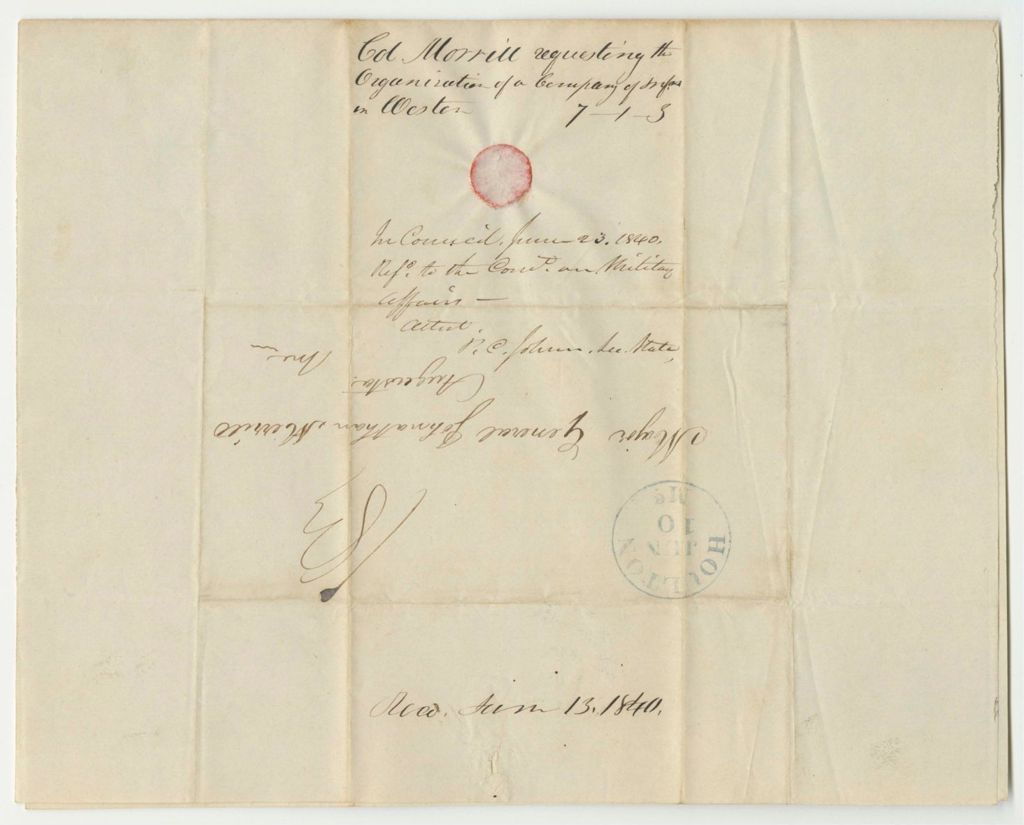 Col Morrill requesting the
Organization of a Company of Inf.
in Weston 7-1-3
In Council, June 23. 1840.
Refd. to the Comt. on Military
Affairs —
Attest.
P. C. Johnson, Sec. State,
Major General Johnathan Merrill
Augusta
Me
HOULTON
JUN
10
Me
Recd. June 13. 1840.